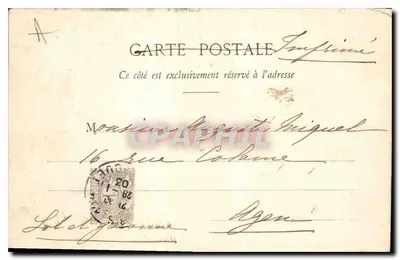 A
CARTE POSTALE Imprimé
Ce côté est exclusivement réservé à l'adresse
Monsieur Auguste Miquel
16 rue
Agen
Lot et Garonne